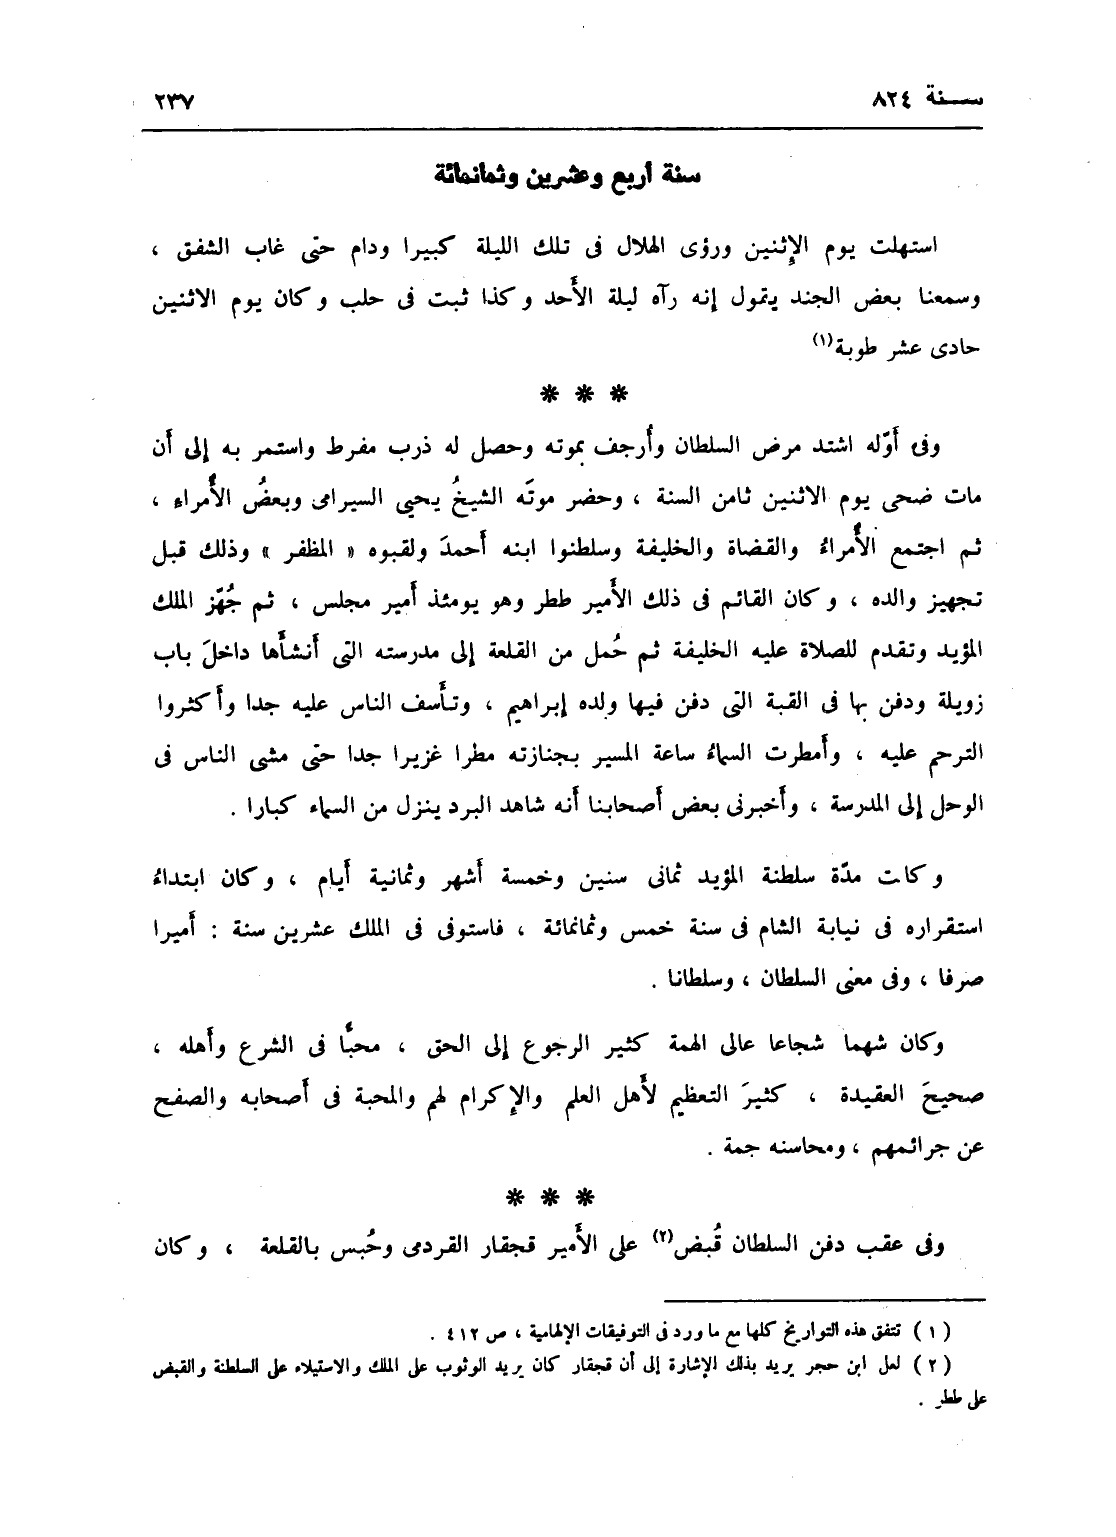 سنة ٨٢٤ ٢٣٧
سنة أربع وعشرين وثمانمائة
استهلت يوم الإثنين ورؤى الهلال فى تلك الليلة كبيرا ودام حتى غاب الشفق ،
وسمعنا بعض الجند يقول إنه رآه ليلة الأحد وكذا ثبت فى حلب وكان يوم الاثنين
حادى عشر طوبة(١)
* * *
وفى أوّله اشتد مرض السلطان وأُرجف بموته وحصل له ذرب مفرط واستمر به إلى أن
مات ضحى يوم الاثنين ثامن السنة ، وحضر موتَه الشيخُ يحيى السيرامى وبعضُ الأُمراء ،
ثم اجتمع الأُمراءُ والقضاة والخليفة وسلطنوا ابنه أحمدَ ولقبوه « المظفر » وذلك قبل
تجهيز والده ، وكان القائم فى ذلك الأمير ططر وهو يومئذ أمير مجلس ، ثم جُهّز الملك
المؤيد وتقدم للصلاة عليه الخليفة ثم حُمل من القلعة إلى مدرسته التى أنشأها داخلَ باب
زويلة ودفن بها فى القبة التى دفن فيها ولده إبراهيم ، وتأسف الناس عليه جدا وأكثروا
الترحم عليه ، وأمطرت السماءُ ساعة المسير بجنازته مطرا غزيرا جدا حتى مشى الناس فى
الوحل إلى المدرسة ، وأخبرنى بعض أصحابنا أنه شاهد البرد ينزل من السماء كبارا .
وكانت مدّة سلطنة المؤيد ثمانى سنين وخمسة أشهر وثمانية أيام ، وكان ابتداءُ
استقراره فى نيابة الشام فى سنة خمس وثمانمائة ، فاستوفى فى الملك عشرين سنة : أميرا
صرفا ، وفى معنى السلطان ، وسلطانا .
وكان شهما شجاعا عالى الهمة كثير الرجوع إلى الحق ، محبًّا فى الشرع وأهله ،
صحيحَ العقيدة ، كثيرَ التعظيم لأهل العلم والإكرام لهم والمحبة فى أصحابه والصفح
عن جرائمهم ، ومحاسنه جمة .
* * *
وفى عقب دفن السلطان قُبض(٢) على الأمير قجقار القردمى وحُبس بالقلعة ، وكان
( ١ ) تتفق هذه التواريخ كلها مع ما ورد فى التوفيقات الإلهامية ، ص ٤١٢ .
( ٢ ) لعل ابن حجر يريد بذلك الإشارة إلى أن قجقار كان يريد الوثوب على الملك والاستيلاء على السلطنة والقبض
على ططر .